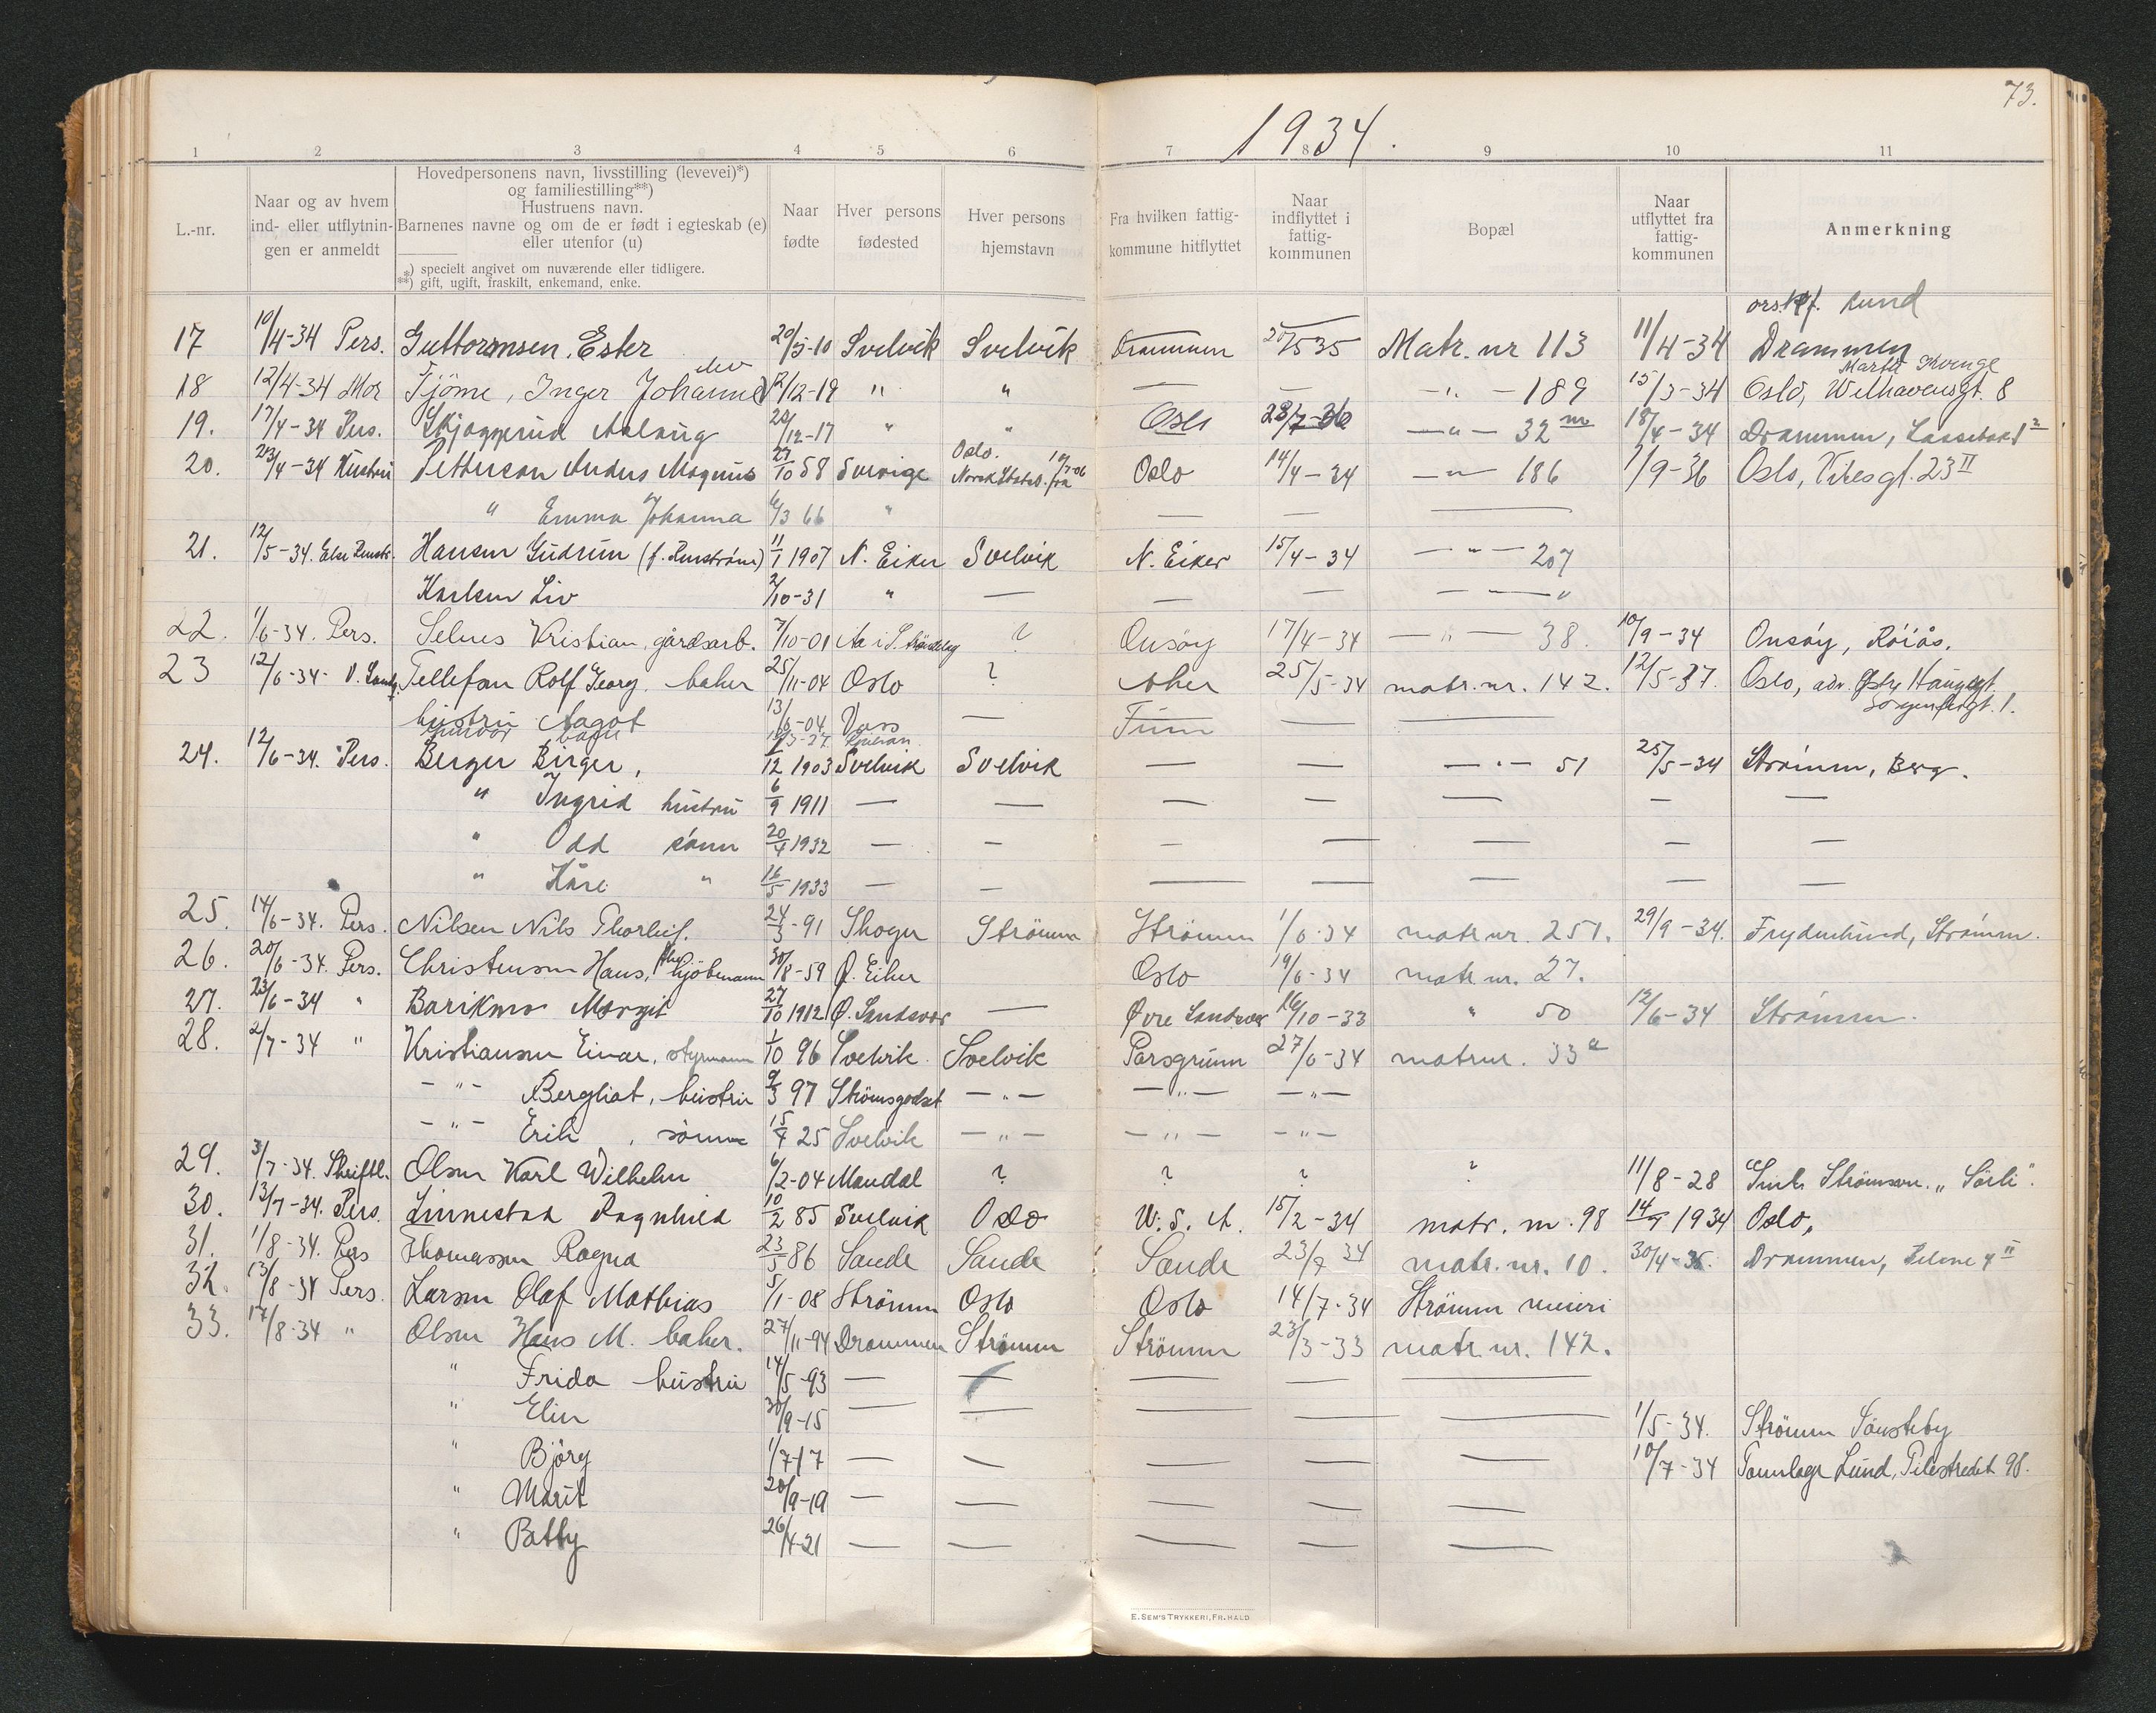 73.
1934.
1 2 3 4 5 6 7 8 9 10 11
L.-nr.
Naar og av hvem
ind- eller utflytnin-
gen er anmeldt
Hovedpersonens navn, livsstilling (levevei)*)
og familiestilling**)
Hustruens navn.
Barnenes navne og om de er født i egteskab (e)
eller utenfor (u)
*) specielt angivet om nuværende eller tidligere.
**) gift, ugift, fraskilt, enkemand, enke.
Naar
fødte
Hver persons
fødested
Hver persons
hjemstavn
Fra hvilken fattig-
kommune hitflyttet
Naar
indflyttet i
fattig-
kommunen
Bopæl
Naar
utflyttet fra
fattig-
kommunen
Anmerkning
Lund
17 10/4-34 Pers. Guttormsen, Ester 20/5-10 Svelvik Svelvik Drammen 20/5 35 Matr. nr 113 11/4-34 Drammen
elev
Marta
18 12/4-34 Mor Tjöme, Inger Johanne 12/12-19 " " — — -"- 189 15/3-34 Oslo, Welhavensgt. 8
19. 17/4-34 Pers. Aslaug 20/12-17 " " Oslo 28/7-36 -"- 32 18/4-34 Drammen,
Oslo.
20. 23/4-34 Hustru Petterson Anders Magnus 27/10 58 Sverige Norsk Statsb. fra Oslo 14/4-34 -"- 186 1/9-36 Oslo, 23 II
" Emma Johanna 6/3 66 " — — —
21. 12/5-34. Hansen Gudrun 11/1 1907 N. Eiker Svelvik N. Eiker 15/4-34 -"- 207
Karlsen Liv 2/10-31 " — — — — "
22. 1/6-34. Pers. Selnes Kristian, gårdsarb. 7/10-01 ? Onsöy 17/4-34 -"- 38. 10/9-34 Onsöy,
23 12/6-34- Tellefsen Rolf Georg, baker 25/11-04 Oslo ? Aker 25/5-34 matr. nr. 142. 12/5-37. Oslo,
hustru Aagot 13/6-04 Voss — — —
24. 12/6-34. Pers. Berger Birger, 1/12 1903 Svelvik Svelvik — — -"- 51 25/5-34 Strömm, Berg.
" Ingrid hustru 6/9 1911 — — — — — — —
" Odd sönn 20/4 1932 — — — — — — —
" Kåre " 16/5 1933 — — — — — — —
25. 14/6-34. Pers. Nilsen Nils Thorleif. 24/3-91 Skoger Strömm Strömm 1/6-34 matr. nr. 251. 29/9-34. Frydenlund, Strömm.
26. 20/6-34. Pers. Christensen Hans, kjöbmann 30/8-59 Ø. Eiker Oslo 19/6-34 matr. nr. 27.
27. 23/6-34 " Margit 27/10 1912 Ø. Sandsvær — Øvre Sandsvær 16/10-33 " 50 12/6-34 Strömm.
28. 2/7-34 " Kristiansen Einar, styrmann 1/10 96 Svelvik Svelvik Porsgrunn 27/6-34 matr nr. 33 a
-"- Bergliot, hustru 9/3 97 Strömsgodset -"- -"- -"-
-"- Erik, sönn 15/4 25 Svelvik -"- -"- -"-
29. 3/7-34. Skriftl. Olsen Karl Wilhelm 6/2-04 Mandal ? ? ? ? 11/8-28
30. 13/7-34. Pers. Linnestad Ragnhild 10/2 85 Svelvik Oslo U. S. A. 15/2-34 matr. nr. 98 1934 Oslo,
31. 1/8-34. Pers Thomassen Ragna 23/5 86 Sande Sande Sande 23/7 34 matr. nr. 10. 30/4-35. Drammen,
32. 13/8-34 Pers. Larsen Olaf Mathias 5/1-08 Strömm Oslo Oslo 14/7-34 Strömm meieri
33. 17/8-34 " Olsen Hans M. baker. 27/11-94 Drammen Strömm Strömm 23/3-33 matr. nr. 142.
" Frida hustru 14/5-93 — — — — —
" Elin 30/9-15 — — — — — 1/5-34. Strömm
" Björg 1/7 17 — — — — — 10/7-34 Tannlege Lund, Pilestredet 98.
" Marit 20/9-19 — — — — —
" Betty 26/4-21 — — — — —
E. SEM'S TRYKKERI, FR.HALD